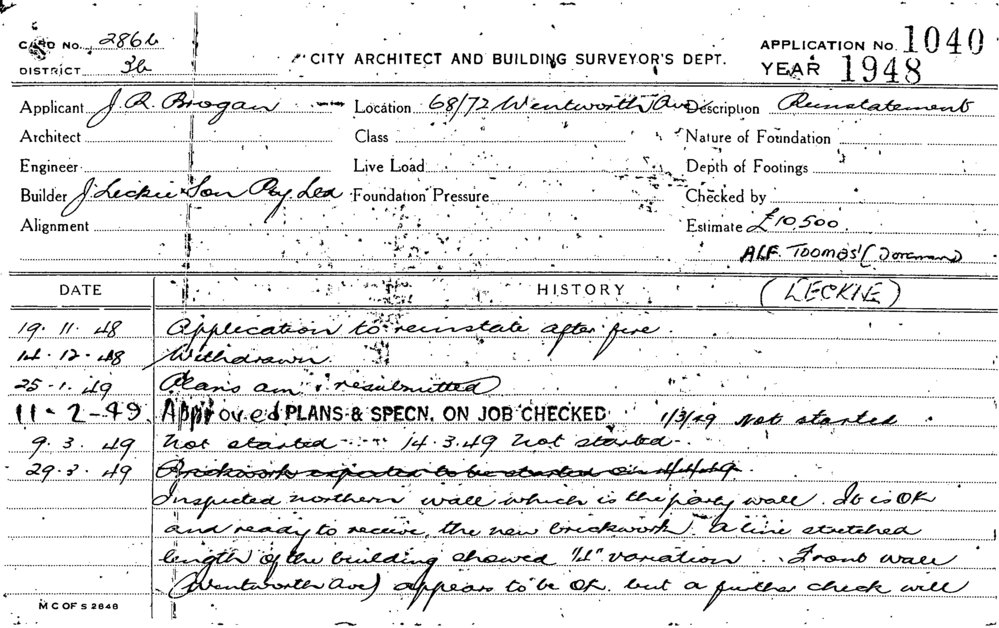 CARD NO. 286b
DISTRICT 3b
CITY ARCHITECT AND BUILDING SURVEYOR'S DEPT.
APPLICATION No. 1040
YEAR 1948
Applicant J. R. Brogan Location 68/72 Wentworth Ave Description Reinstatement
Architect Class Nature of Foundation
Engineer Live Load Depth of Footings
Builder J Leckie & Son Pty Ltd Foundation Pressure Checked by
Alignment Estimate £10,500
ALF. Toomas (Foreman)
DATE HISTORY (LECKIE)
19. 11. 48 Application to reinstate after fire.
14. 12. 48 Withdrawn
25. 1. 49 Plans am resubmitted
11-2-49. Approved PLANS & SPECN. ON JOB CHECKED 1/3/49 Not started
9. 3. 49 Not started 14. 3. 49 Not started
29. 3. 49 Brickwork expected to be started on 4/4/49.
Inspected northern wall which is the party wall. It is OK
and ready to receive the new brickwork. A line stretched
length of the building showed variation. Front wall
(Wentworth Ave) appears to be OK. but a further check will
M C OF S 2848